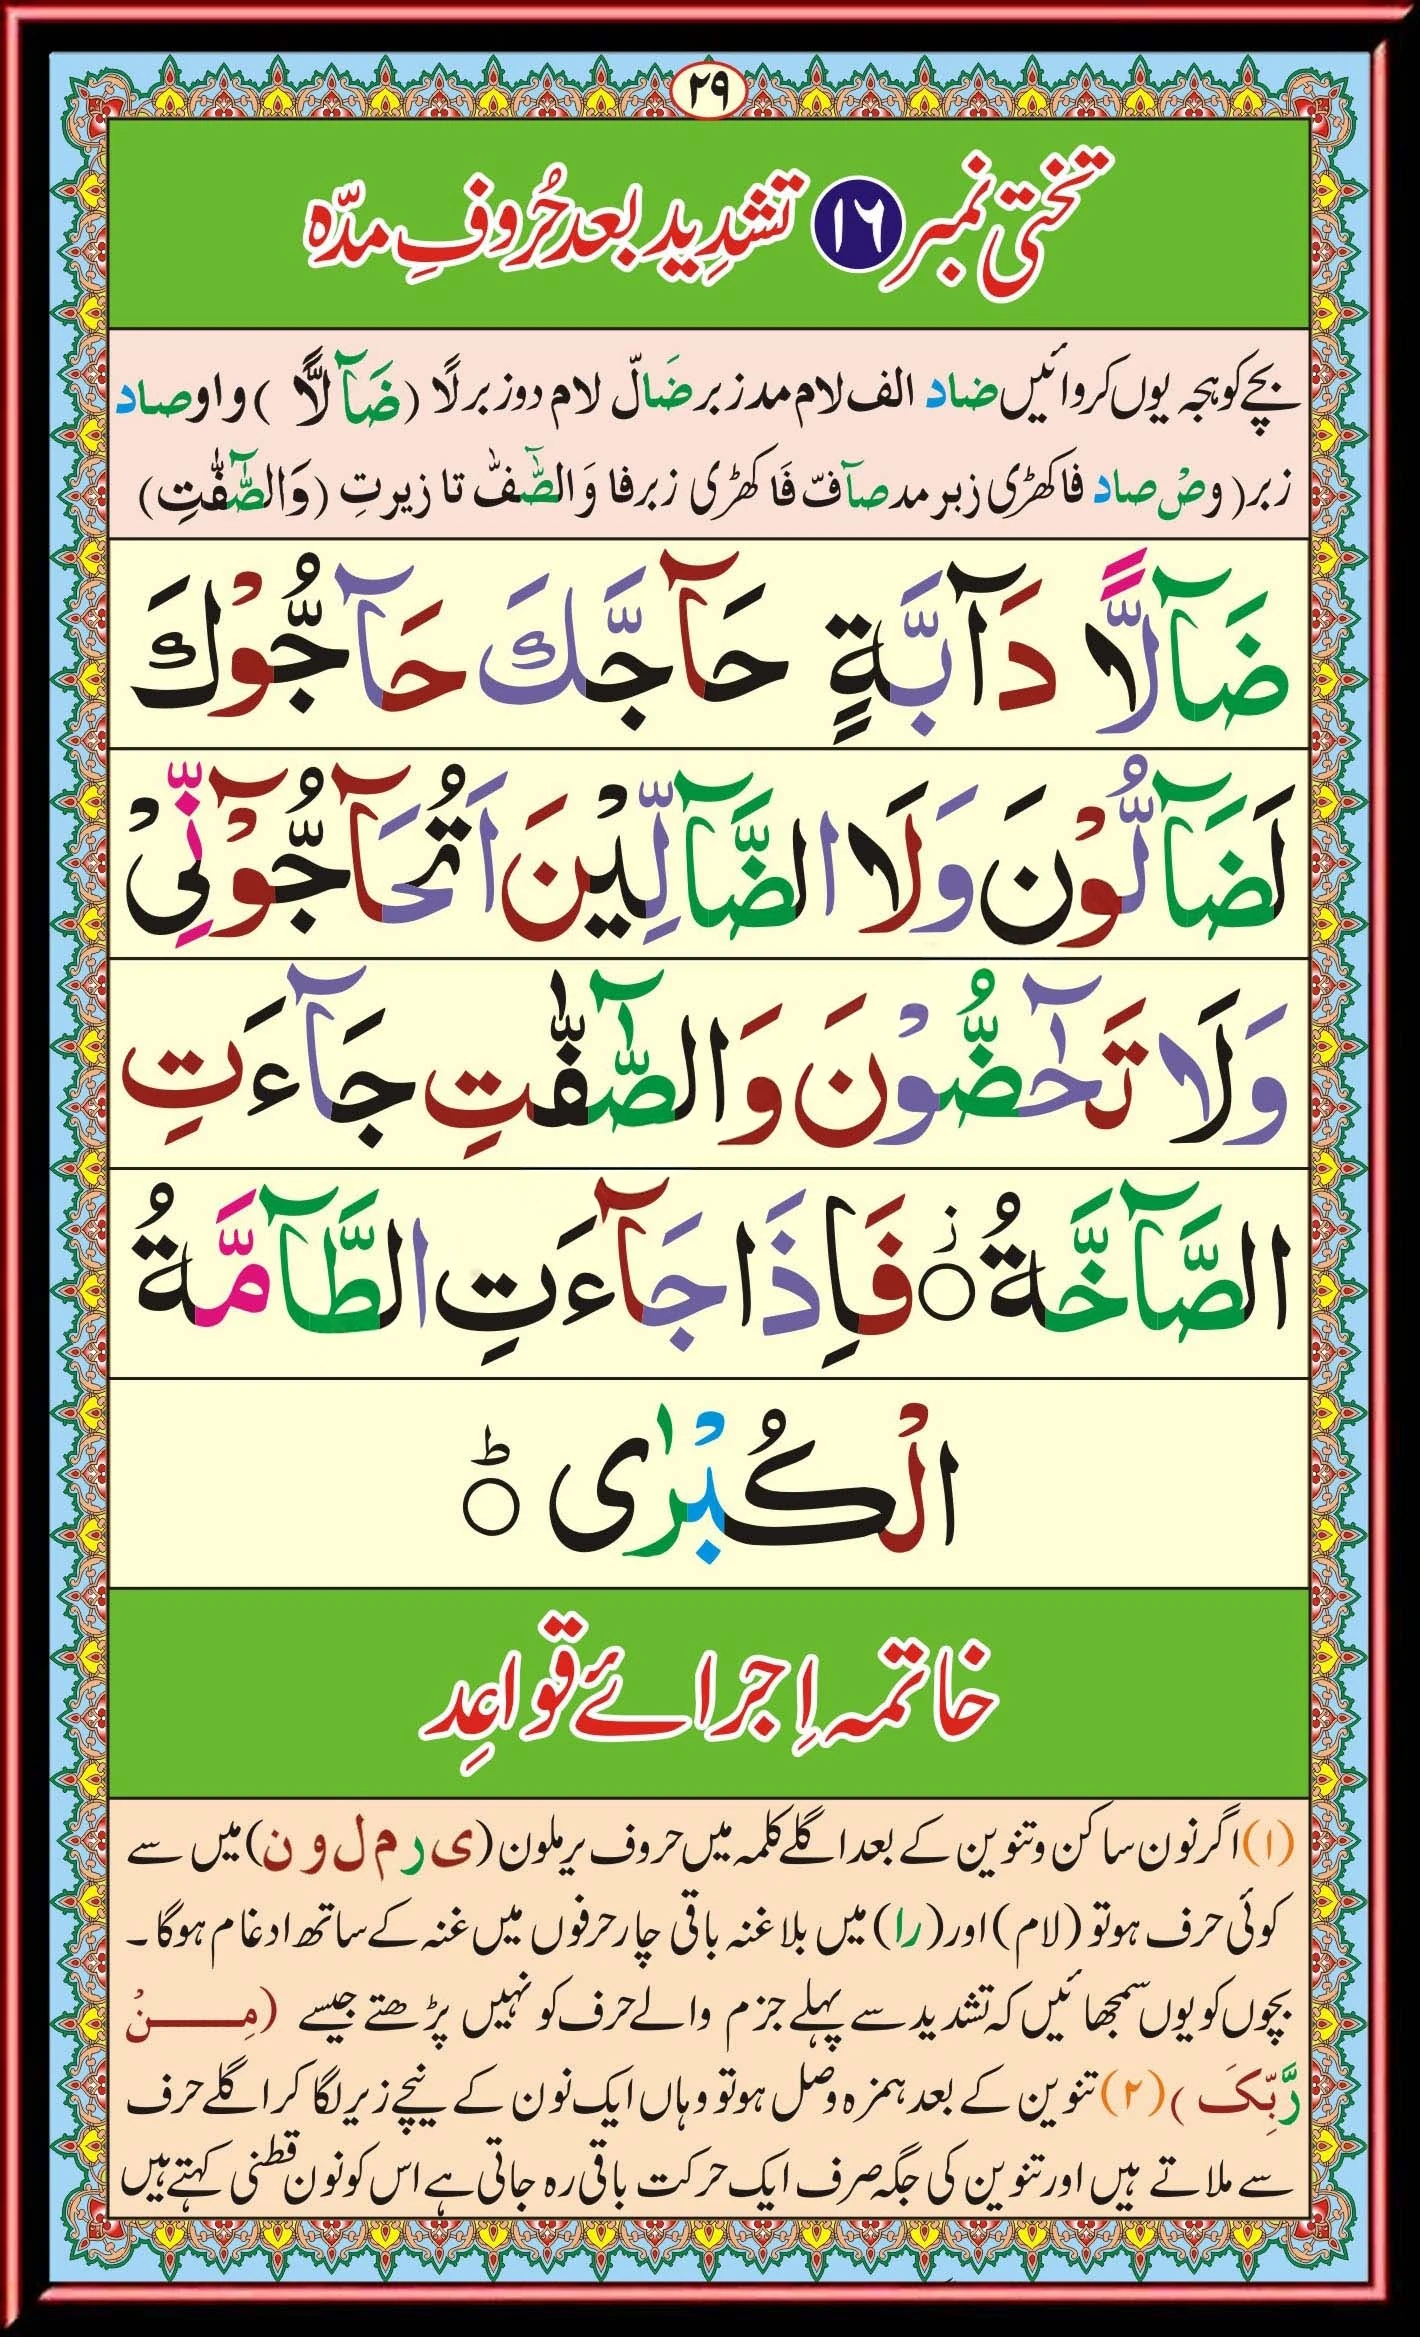 ۲۹
تختی نمبر ۱۶ تشدِید بعد حُروفِ مدّہ
بچے کو ہجہ یوں کروائیں ضاد الف لام مد زبر ضَالّ لام دو زبر لًا (ضَآلًّا) واو صاد
زبر (وصْ صاد فا کھڑی زبر مد صآفّ فَا کھڑی زبر فا وَالصّٰٓفّٰ تا زیر تِ (وَالصّٰٓفّٰتِ)
ضَآلًّا دَآبَّةٍ حَآجَّكَ حَآجُّوْكَ
لَضَآلُّوْنَ وَلَا الضَّآلِّيْنَ اَتُحَآجُّوْٓنِّيْ
وَلَا تَحٰٓضُّوْنَ وَالصّٰٓفّٰتِ جَآءَتِ
الصَّآخَّةُ ۝ز فَاِذَا جَآءَتِ الطَّآمَّةُ
الْكُبْرٰى ۝ط
خاتمہ اِجرائے قواعِد
(۱) اگر نون ساکن و تنوین کے بعد اگلے کلمہ میں حروف یرملون (ی ر م ل و ن) میں سے
کوئی حرف ہو تو (لام) اور (را) میں بلا غنہ باقی چار حرفوں میں غنہ کے ساتھ ادغام ہوگا۔
بچوں کو یوں سمجھائیں کہ تشدید سے پہلے جزم والے حرف کو نہیں پڑھتے جیسے (مِنْ
رَّبِّکَ) (۲) تنوین کے بعد ہمزہ وصل ہو تو وہاں ایک نون کے نیچے زیر لگا کر اگلے حرف
سے ملاتے ہیں اور تنوین کی جگہ صرف ایک حرکت باقی رہ جاتی ہے اس کو نون قطنی کہتے ہیں